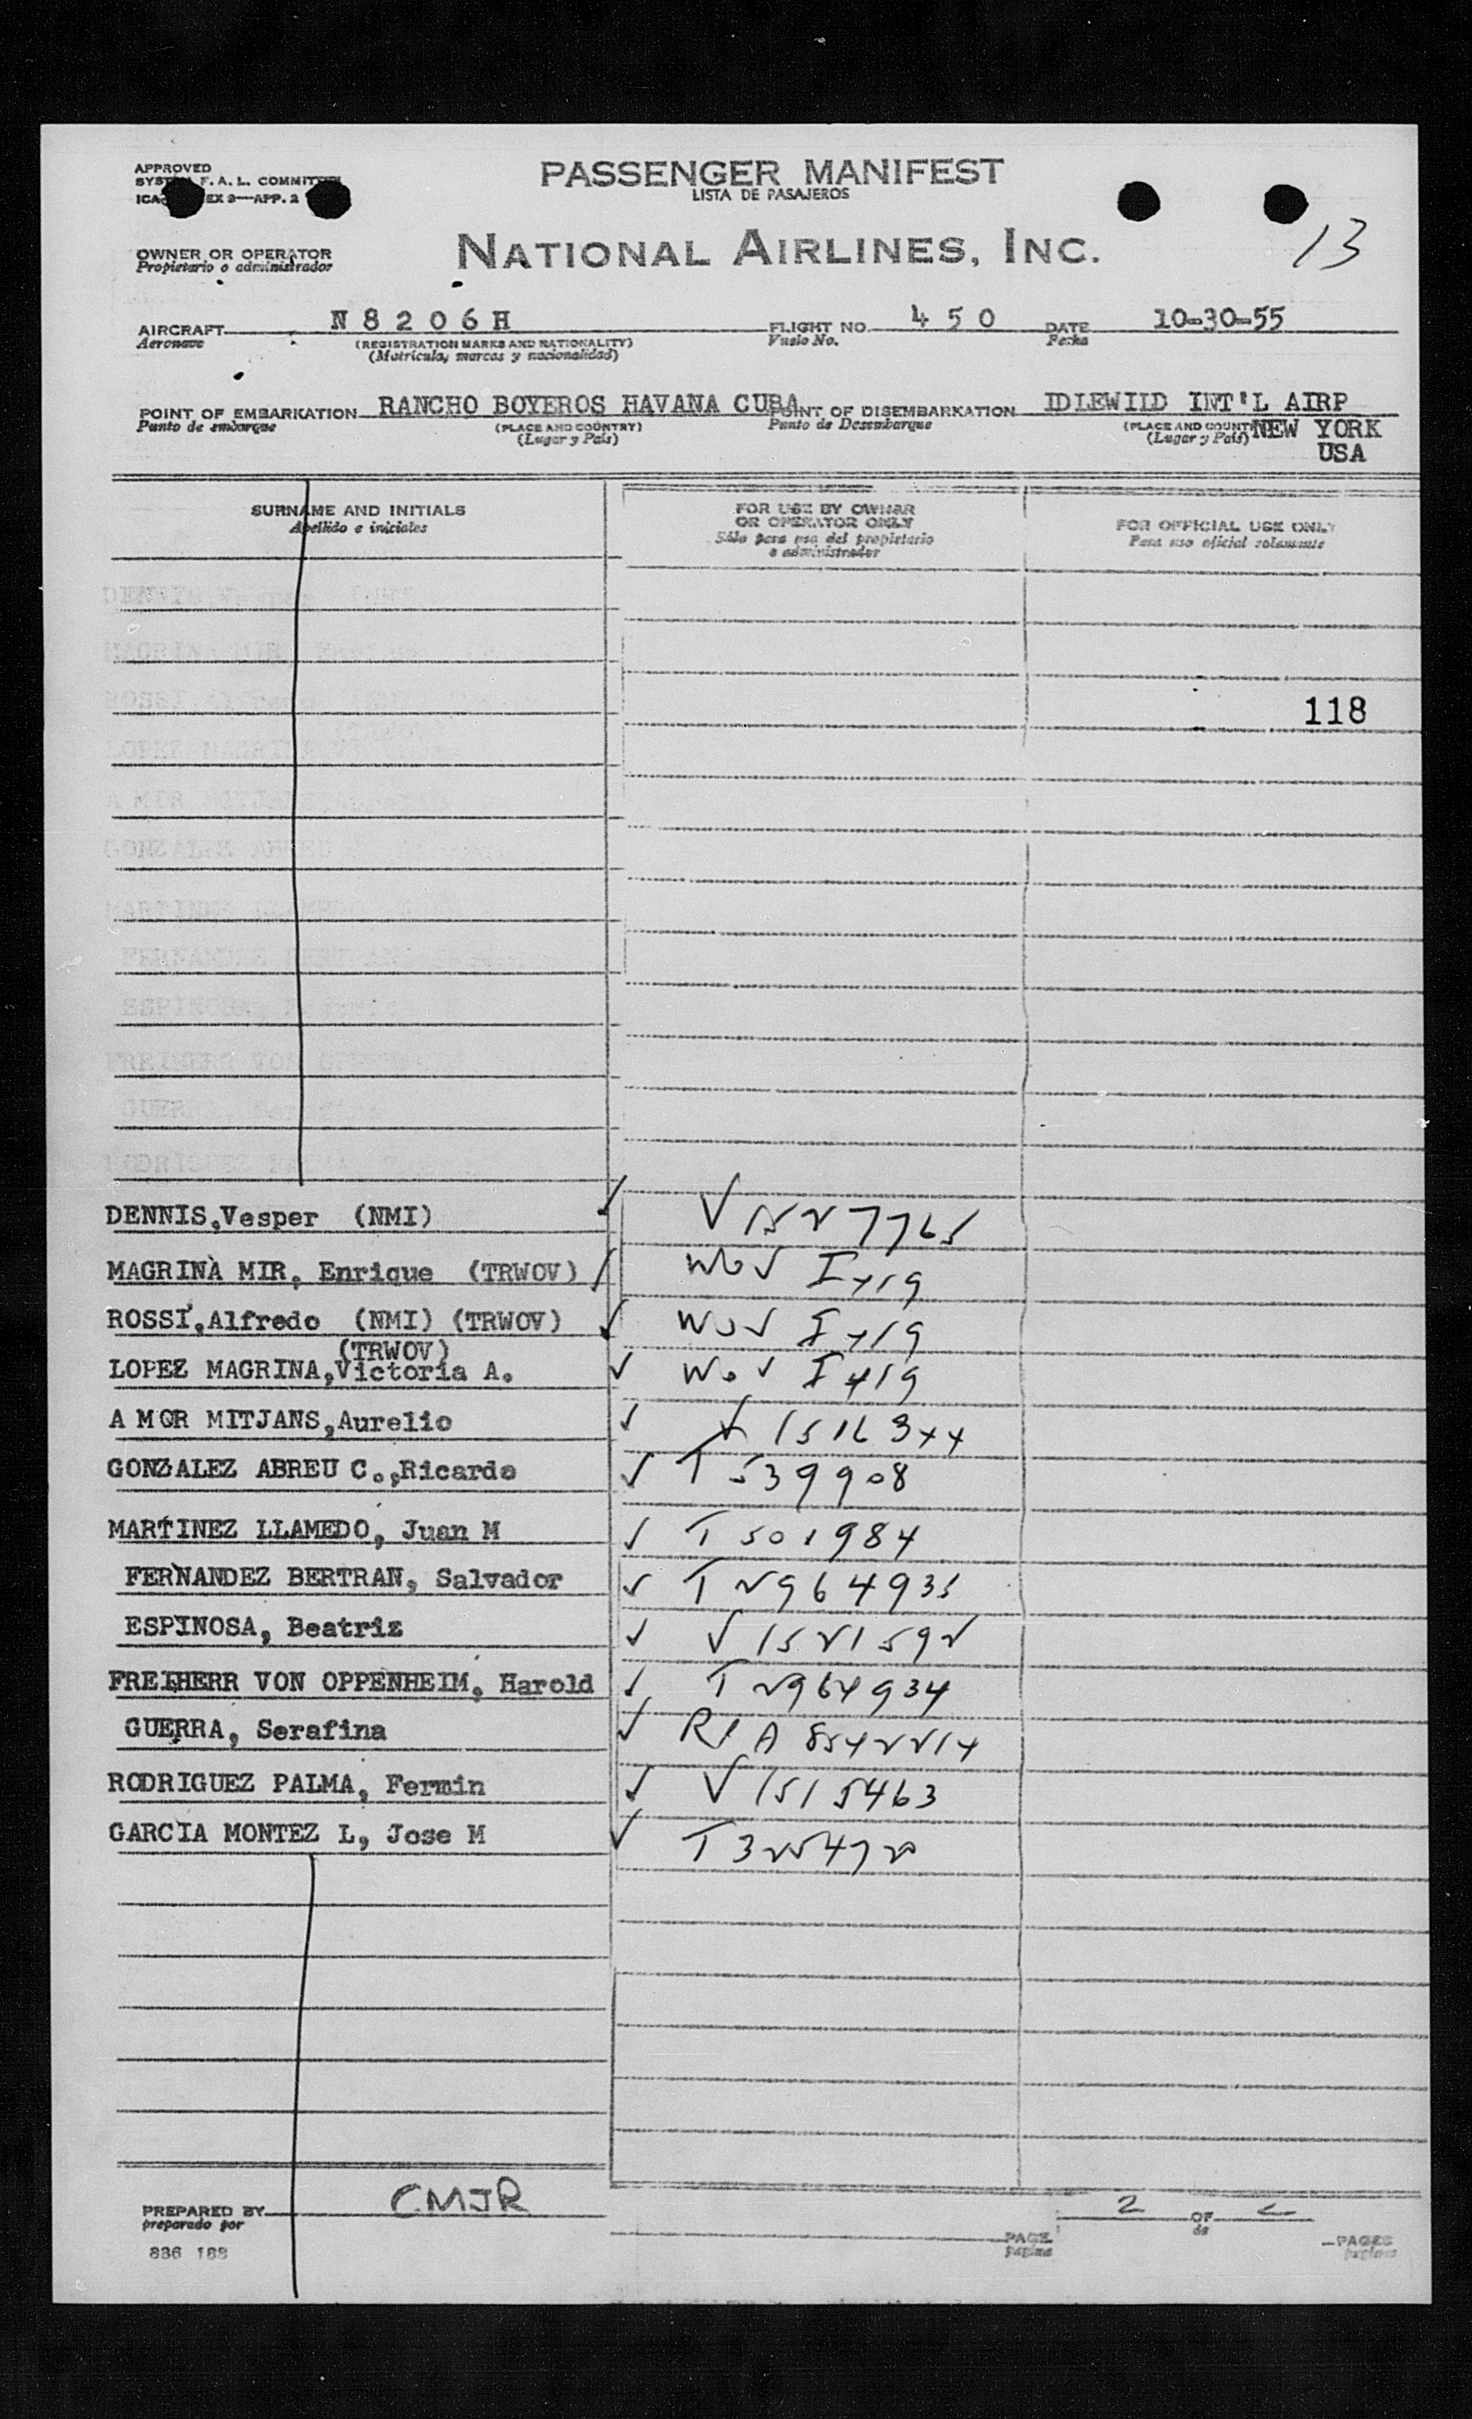 APPROVED
F. A. L. COMMITTEE
EX 9—APP. 2
PASSENGER MANIFEST
LISTA DE PASAJEROS
OWNER OR OPERATOR
Propietario o administrador
NATIONAL AIRLINES, INC.
13
AIRCRAFT N8206H FLIGHT NO. 450 DATE 10-30-55
Aeronave (REGISTRATION MARKS AND NATIONALITY) Vuelo No. Fecha
(Matrícula, marcas y nacionalidad)
POINT OF EMBARKATION RANCHO BOYEROS HAVANA CUBA POINT OF DISEMBARKATION IDLEWILD INT'L AIRP
Punto de embarque (PLACE AND COUNTRY) Punto de Desembarque (PLACE AND COUNT NEW YORK
(Lugar y País) (Lugar y País) USA
SURNAME AND INITIALS
Apellido e iniciales
FOR USE BY OWNER
OR OPERATOR ONLY
Sólo para uso del propietario
o administrador
FOR OFFICIAL USE ONLY
Para uso oficial solamente
118
DENNIS,Vesper (NMI)
MAGRINA MIR, Enrique (TRWOV) WOV
ROSSI,Alfredo (NMI) (TRWOV) WOV
(TRWOV)
LOPEZ MAGRINA,Victoria A. WOV
AMOR MITJANS,Aurelio
GONZALEZ ABREU C.,Ricardo T 539908
MARTINEZ LLAMEDO, Juan M T 501984
FERNANDEZ BERTRAN, Salvador T 2964935
ESPINOSA, Beatriz V 1521592
FREIHERR VON OPPENHEIM, Harold T 2964934
GUERRA, Serafina
RODRIGUEZ PALMA, Fermin V 1515463
GARCIA MONTEZ L, Jose M T 325472
PREPARED BY CMJR
preparado por
836 188
PAGE 2 OF 2 PAGES
página de páginas